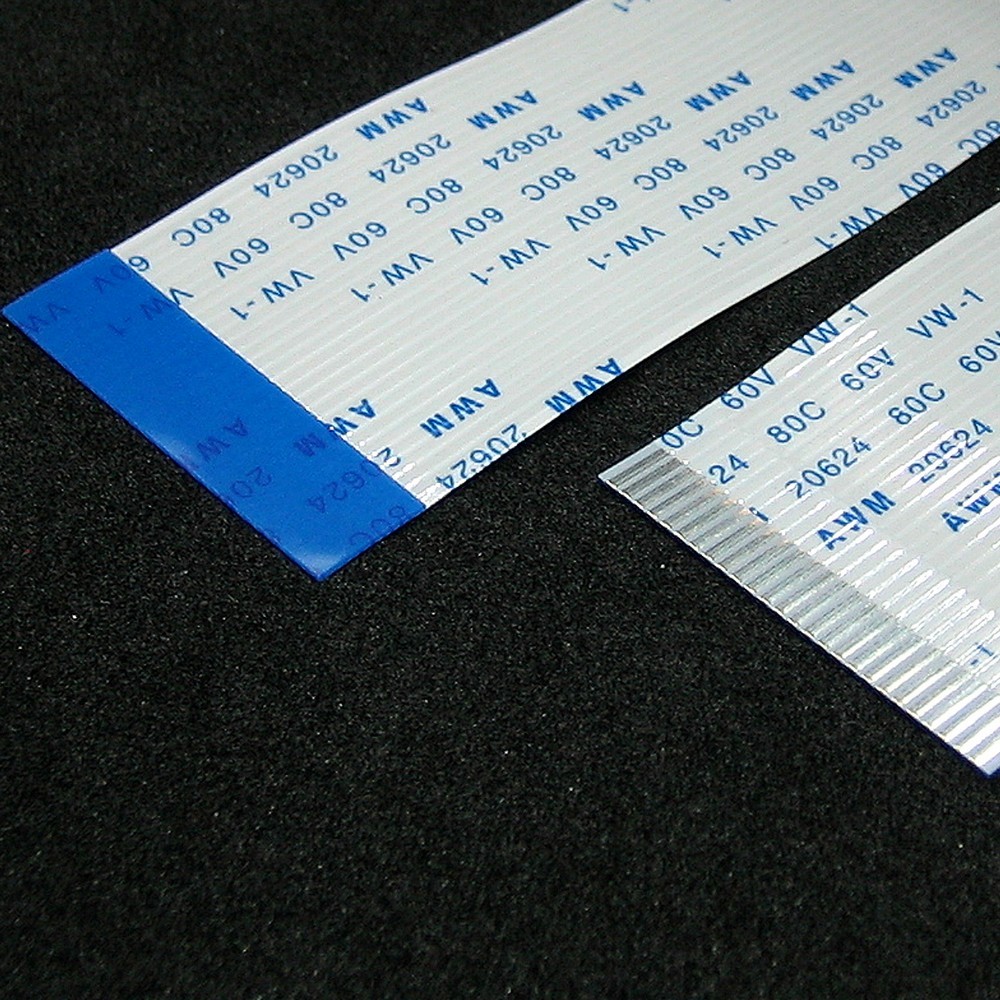 AWM 20624 80C 60V VW-1
AWM 20624 80C 60V VW-1
AWM 20624 80C 60V VW-1
AWM 20624 80C 60V VW-1
AWM 20624 80C 60V VW-1
AWM 20624 80C 60V
AWM 20624 80C
AWM 20624
AWM
AWM 20624 80C 60V VW-1
AWM 20624 80C 60V VW-1